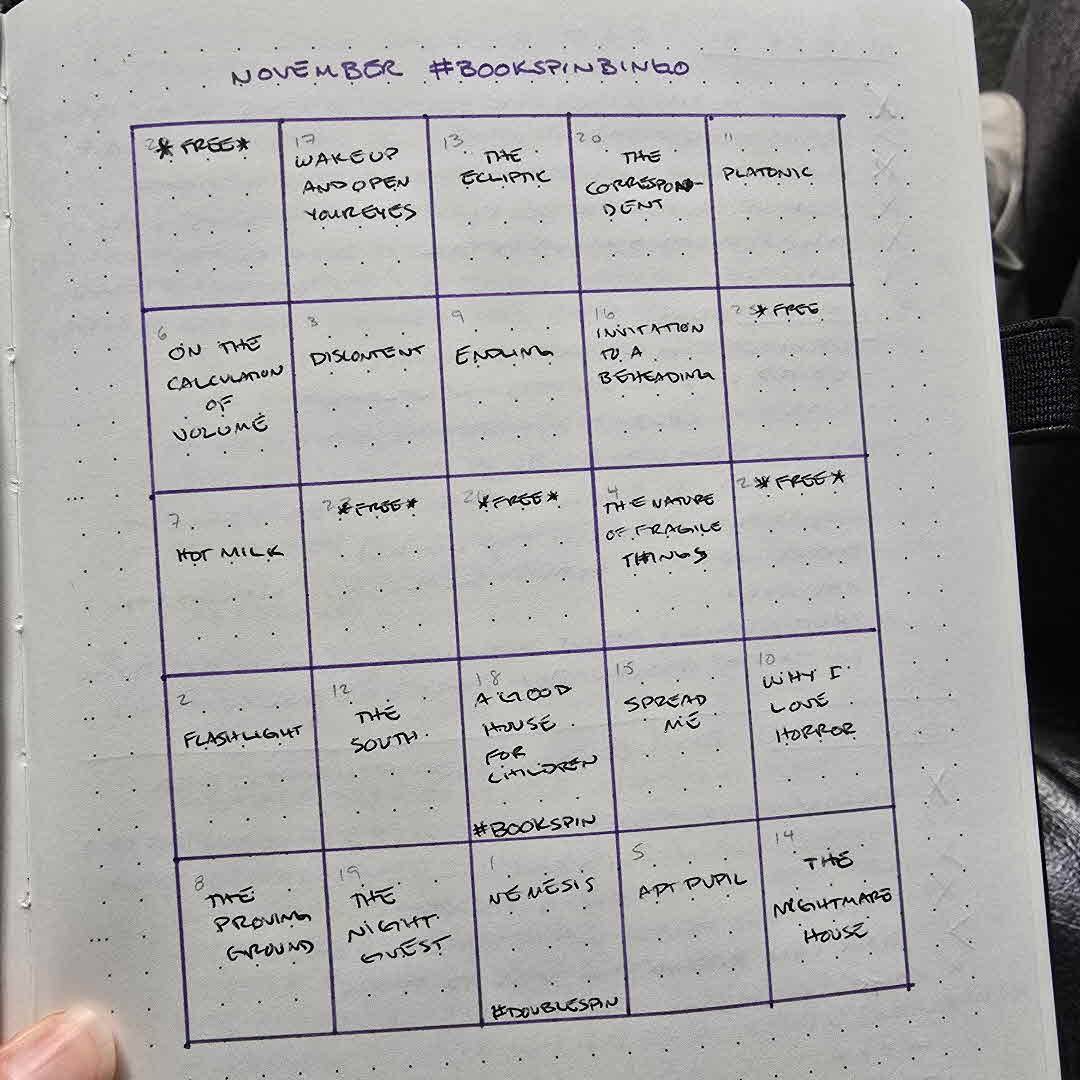 NOVEMBER #BOOKSPINBINGO
*FREE*
17
WAKE UP
AND OPEN
YOUR EYES
13
THE
ECLIPTIC
20
THE
CORRESPON-
DENT
11
PLATONIC
6
ON THE
CALCULATION
OF
VOLUME
3
DISCONTENT
9
ENDLING
16
INVITATION
TO A
BEHEADING
25 *FREE
7
HOT MILK
*FREE*
*FREE*
4
THE NATURE
OF FRAGILE
THINGS
*FREE*
2
FLASHLIGHT
12
THE
SOUTH
18
A GOOD
HOUSE
FOR
CHILDREN
#BOOKSPIN
15
SPREAD
ME
10
WHY I
LOVE
HORROR
8
THE
PROVING
GROUND
19
THE
NIGHT
GUEST
1
NEMESIS
#DOUBLESPIN
5
APT PUPIL
14
THE
NIGHTMARE
HOUSE